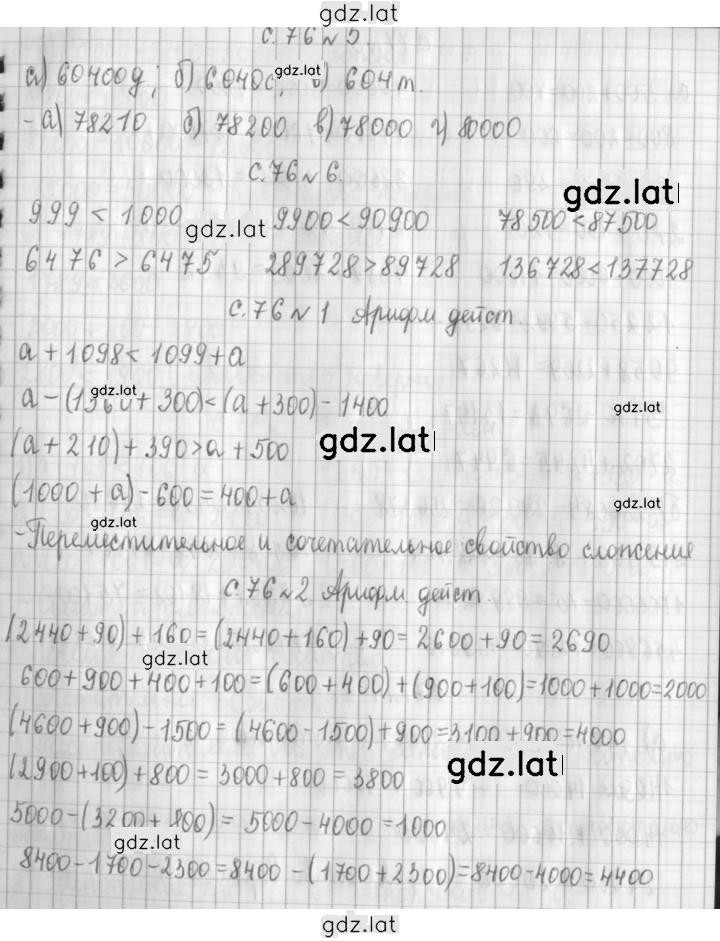 gdz.lat
с. 76 № 5
а) 60400д; б) 6040с, в) 604т.
gdz.lat
- а) 78210 б) 78200 в) 78000 г) 80000
с. 76 № 6.
gdz.lat
999 < 1000 9900 < 90900 78500 < 87500
gdz.lat
6476 > 6475 289728 > 89728 136728 < 137728
с. 76 № 1 Арифм дейст.
а + 1098 < 1099 + а
gdz.lat
а - (1360 + 300) < (а + 300) - 1400
gdz.lat
(а + 210) + 390 > а + 500
gdz.lat
(1000 + а) - 600 = 400 + а
gdz.lat
gdz.lat
- Переместительное и сочетательное свойство сложения
с. 76 № 2 Арифм дейст
(2440 + 90) + 160 = (2440 + 160) + 90 = 2600 + 90 = 2690
gdz.lat
600 + 900 + 400 + 100 = (600 + 400) + (900 + 100) = 1000 + 1000 = 2000
(4600 + 900) - 1500 = (4600 - 1500) + 900 = 3100 + 900 = 4000
gdz.lat
(2900 + 100) + 800 = 3000 + 800 = 3800
5000 - (3200 + 800) = 5000 - 4000 = 1000
gdz.lat
8400 - 1700 - 2300 = 8400 - (1700 + 2300) = 8400 - 4000 = 4400
gdz.lat